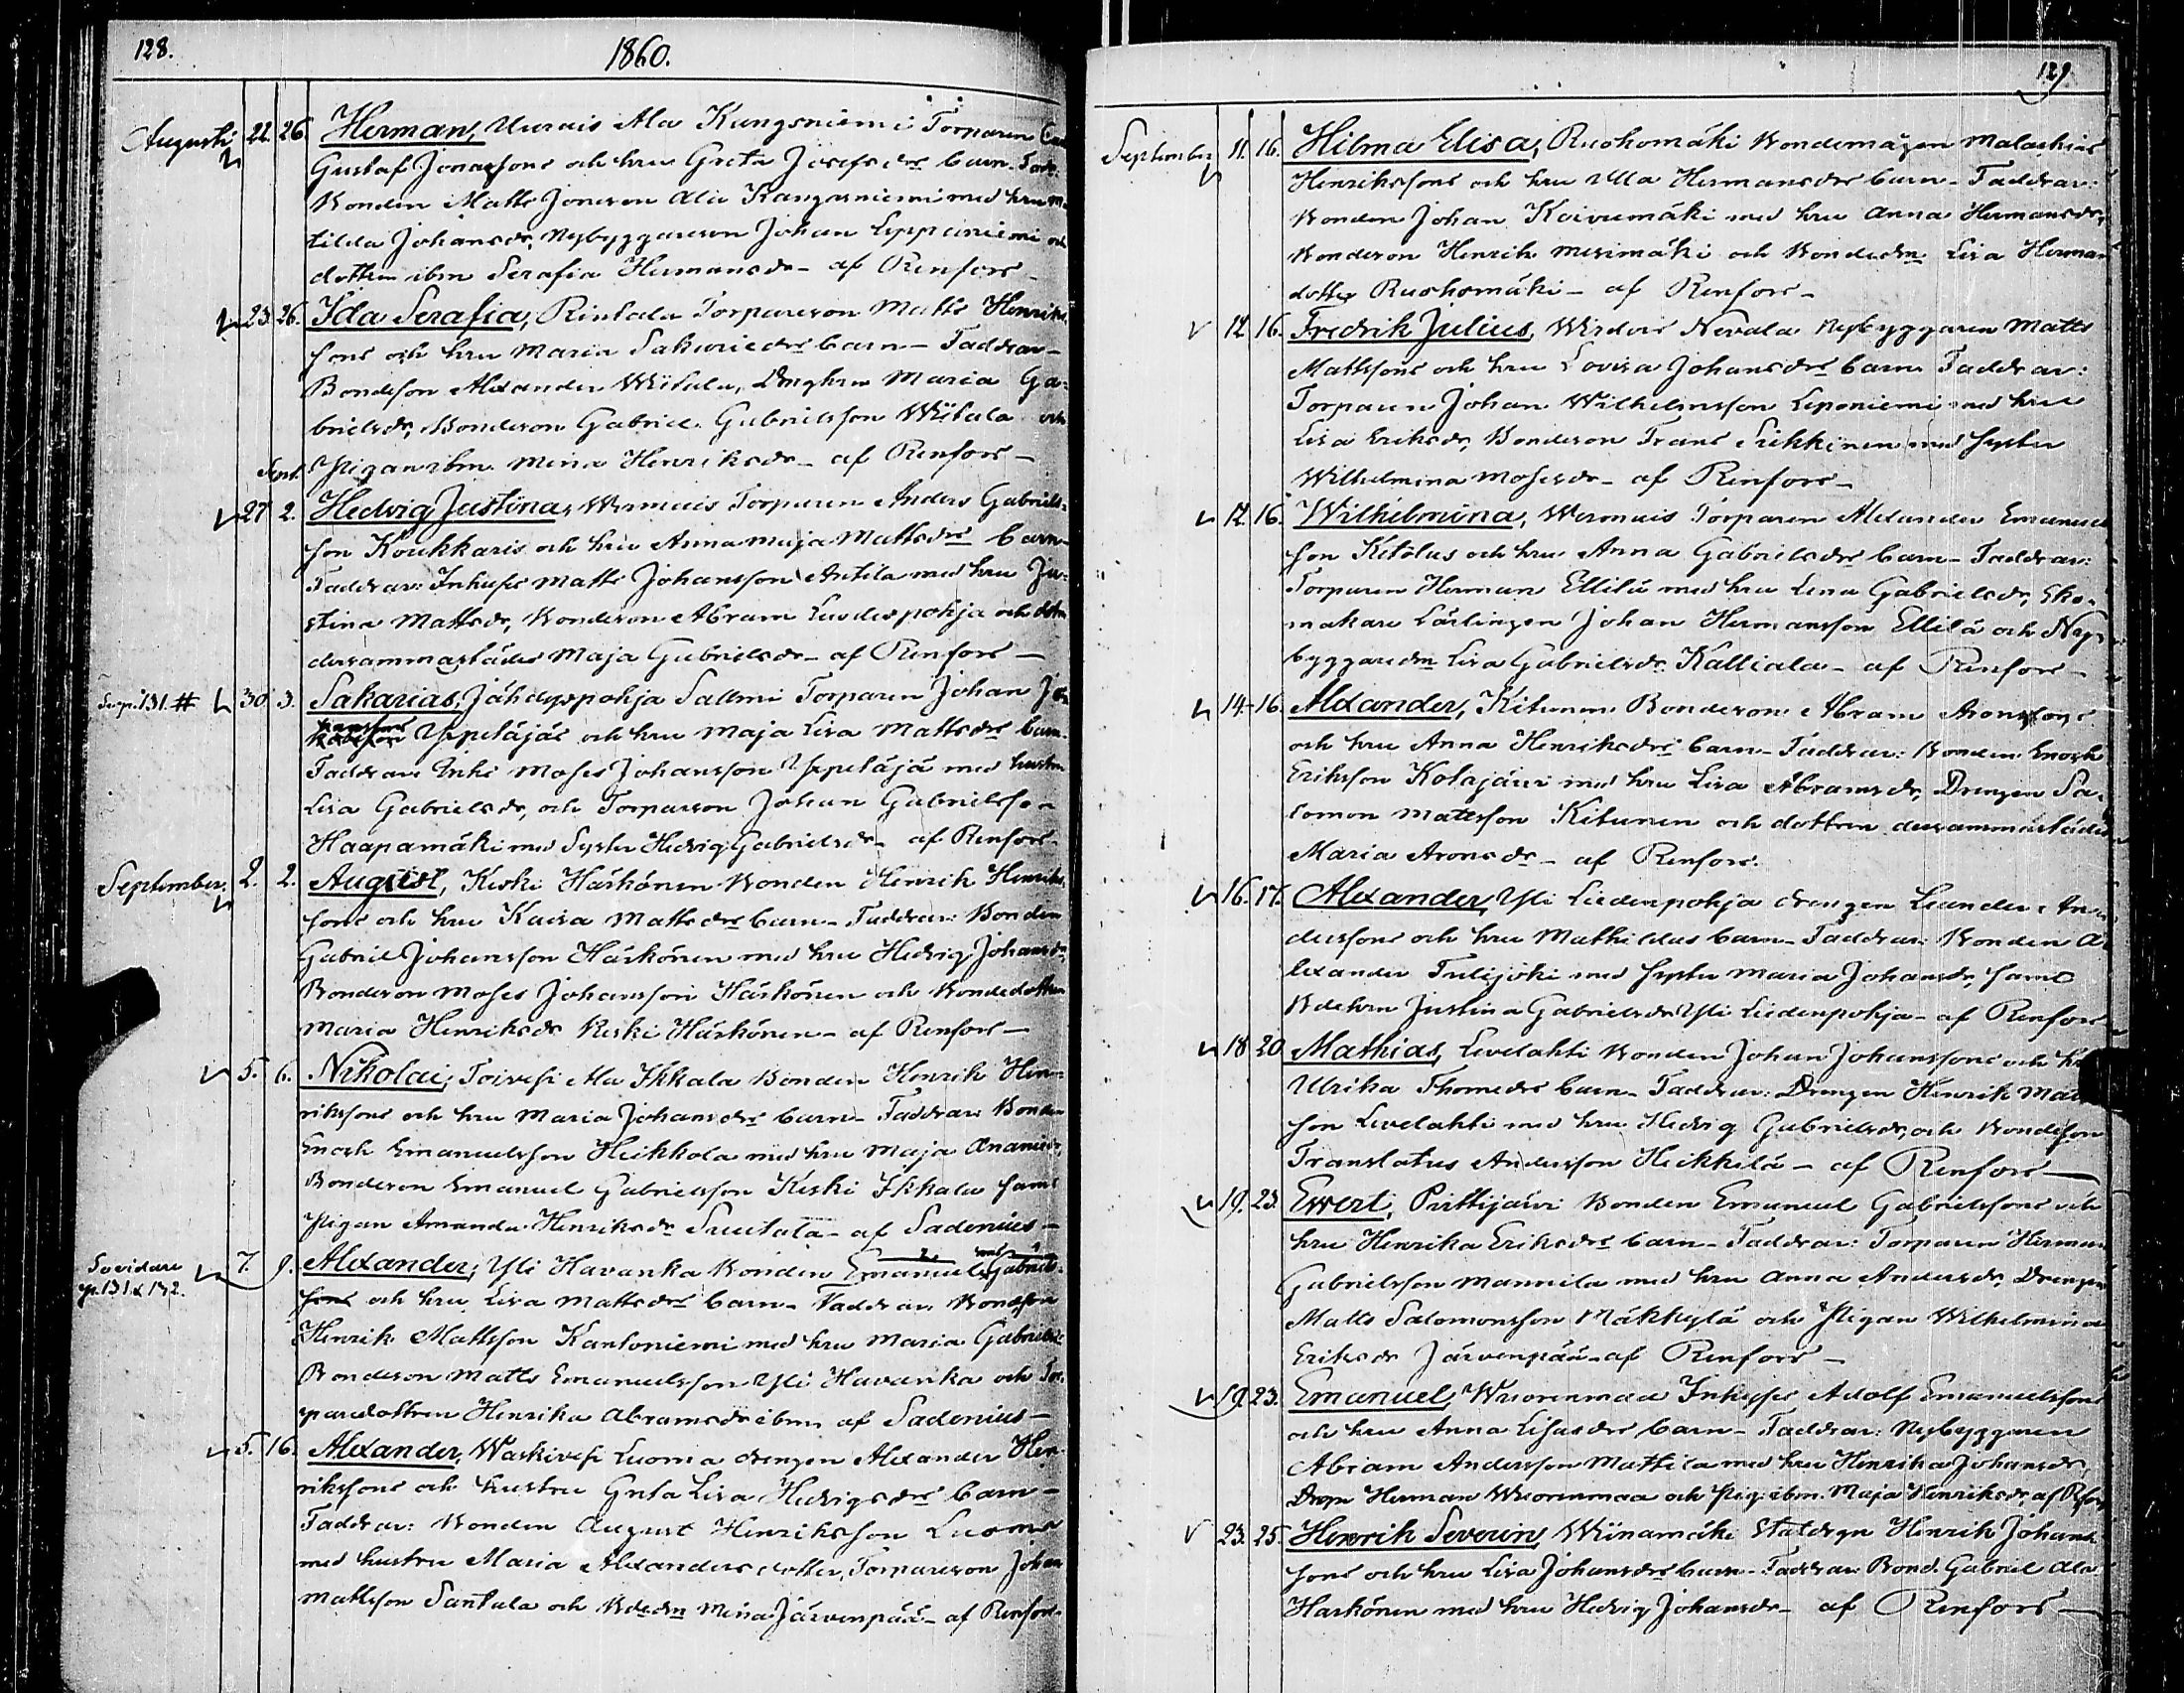 128.
1860.
Augusti 22. 26. Herman, Uurais Ala Kangsniemi Torparen
Gustaf Jonassons och hru Greta Josefsdrs barn. Fadr.
Bonden Matts Jonsson Ala Kangasniemi med hru Ma-
tilda Johansdr, Nybyggareson Johan Leppäniemi och
dottren ibm Serafia Hermansdr - af Renfors -
23. 26. Ida Serafia, Rintala Torpareson Matts Henriks-
sons och hru Maria Sakariedrs barn - Faddrar -
Bondeson Alexander Wiitala, Drnghru Maria Ga-
brielsdr, Bondeson Gabriel Gabrielsson Wiitala och
Sept. Pigan ibm Mina Henriksdr - af Renfors -
27 2. Hedvig Justina, Wermais Torparen Anders Gabriels-
son Koukkaris och hru Anna Maja Mattsdrs barn -
Faddrar: Inhyses Matts Johansson Antila med hru Ju-
stina Mattsdr, Bondeson Abram Liedespohja och dottren
dersammastädes Maja Gabrielsdr - af Renfors -
Se p. 131. # 30 3. Sakarias, Jähdyspohja Sallmi Torparen Johan Jo-
hanssons Ypeläjäs och hru Maja Lisa Mattsdrs barn.
Faddrar Inhs Moses Johansson Ypeläjä med hustru
Lisa Gabrielsdr, och Torpareson Johan Gabrielsson
Haapamäki med Syster Hedvig Gabrielsdr - af Renfors -
September, 2. 2. August, Keski Härkönen Bonden Henrik Henriks-
sons och hru Kaisa Mattsdrs barn - Faddrar: Bonden
Gabriel Johansson Härkönen med hru Hedvig Johansdr,
Bondeson Moses Johansson Härkönen och Bondedottren
Maria Henriksdr Keski Härkönen - af Renfors -
5. 6. Nikolai, Toivesi Ala Ikkala Bonden Henrik Hen-
rikssons och hru Maria Johansdrs barn - Faddrar Bonden
Enoch Emanuelsson Heikkola med hru Maja Ananiedr,
Bondeson Emanuel Gabrielsson Keski Ikkala samt
Pigan Amanda Henriksdr Suutala - af Sadenius -
Se vidare p. 131 & 132. 7. 9. Alexander, Yli Havanka Bonden Emanuel Gabriels-
sons och hru Lisa Mattsdrs barn - Faddrar, Bondeson
Henrik Mattsson Kantoniemi med hru Maria Gabrielsdr
Bondeson Matts Emanuelsson Yli Havanka och Tor-
paredottren Henrika Abramsdr ibm, af Sadenius -
5. 16. Alexander, Waskivesi Luoma drengen Alexander Hen-
rikssons och hustru Greta Lisa Hedvigsdrs barn -
Faddrar: Bonden August Henriksson Luoma
med hustru Maria Alexandersdotter, Torpareson Johan
Mattsson Santala och Bdedn Mina Järvenpää - af Renfors.
129.
September 11. 16. Hilma Elisa, Ruohomäki Bondemågen Malachias
Henrikssons och hru Ulla Hermansdrs barn - Faddrar:
Bonden Johan Koivumäki med hru Anna Hermansdr,
Bondeson Henrik Merimäki och Bondedn Lisa Herman
dotter Ruohomäki - af Renfors -
12. 16. Fredrik Julius, Wirdois Nevala Nybyggaren Matts
Mattssons och hru Lovisa Johansdrs barn Faddrar:
Torparen Johan Wilhelmsson Leponiemi med hru
Lisa Eriksdr, Bondeson Frans Sikkinen med syster
Wilhelmina Mosesdr - af Renfors -
12. 16. Wilhelmina, Wermais Torparen Alexander Emanuels
son Ketolas och hru Anna Gabrielsdrs barn - Faddrar:
Torparen Herman Ellilä med hru Lena Gabrielsdr, Sko-
makare Lärlingen Johan Hermansson Ellilä och Ny-
byggaredn Lisa Gabrielsdr Kalliala - af Renfors -
14. 16. Alexander, Kitunen Bondeson Abram Aronssons
och hru Anna Henriksdrs barn - Faddrar: Bonden Enoch
Eriksson Kolajärvi med hru Lisa Abramsdr, Drengen Sa-
lomon Mattsson Kitunen och dottren dersammastädes
Maria Aronsdr - af Renfors.
16. 17. Alexander, Yli Liedenpohja drengen Leander An-
derssons och hru Mathildas barn - Faddrar: Bonden A-
lexander Tulijoki med syster Maria Johansdr, samt
Bdehru Justina Gabrielsdr Yli Liedenpohja - af Renfors
18 20 Mathias, Levelahti Bonden Johan Johanssons och
Ulrika Thomedrs barn - Faddrar: Drengen Henrik Matts
son Levelahti med hru Hedvig Gabrielsdr, och Bondeson
Translatus Andersson Heikkilä - af Renfors -
19. 23. Ewert, Pirttijärvi Bonden Emanuel Gabrielssons och
hru Henrika Eriksdrs barn - Faddrar: Torparen Herman
Gabrielsson Mannila med hru Anna Andersdr, Drengen
Matts Salomonsson Mäkkylä och Pigan Wilhelmina
Eriksdr Järvenpää - af Renfors -
19. 23. Emanuel, Wuorenmaa Inhyses Adolf Emanuelssons
och hru Anna Lisas drs barn - Faddrar: Nybyggaren
Abram Andersson Mattila med hru Henrika Johansdr,
Drgn Herman Wuorenmaa och Pig. ibm. Maja Henriksdr, af Rfors
23. 25. Henrik Severin, Wiinamäki Statdrgn Henrik Johans
sons och hru Lisa Johansdrs barn - Faddrar Bond. Gabriel Ala
Harkönen med hru Hedvig Johansdr - af Renfors -